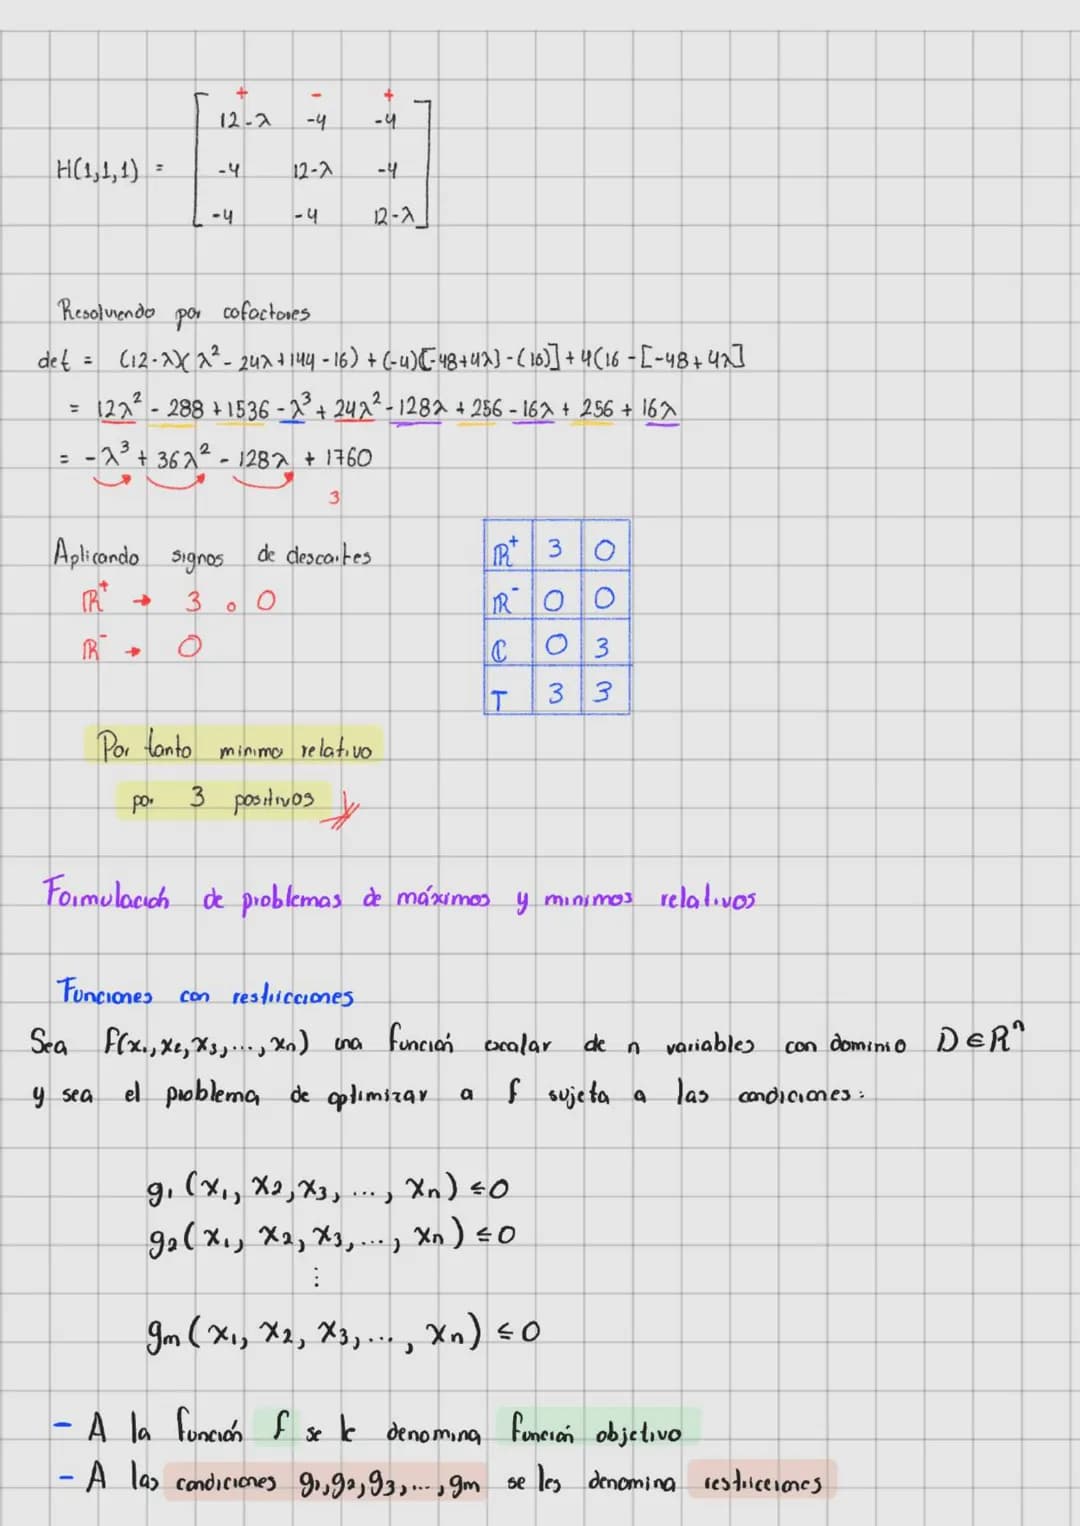 + - +
12-λ -4 -4
H(1,1,1) = -4 12-λ -4
-4 -4 12-λ
Resolviendo por cofactores
det = (12-λ)(λ² - 24λ + 144 - 16) + (-4)([-48+4λ] - (16)] + 4(16 - [-48+4λ]
= 12λ² - 288 + 1536 - λ³ + 24λ² - 128λ + 256 - 16λ + 256 + 16λ
= -λ³ + 36λ² - 128λ + 1760
3
Aplicando signos de descartes
ℝ⁺ → 3 o 0
ℝ⁻ → 0
ℝ⁺ 3 0
ℝ⁻ 0 0
ℂ 0 3
T 3 3
Por tanto minimo relativo
por 3 positivos
Formulación de problemas de máximos y minimos relativos
Funciones con restricciones
Sea f(x₁, x₂, x₃, ..., xₙ) una función escalar de n variables con dominio D∈Rⁿ
y sea el problema de optimizar a f sujeta a las condiciones:
g₁(x₁, x₂, x₃, ..., xₙ) ≤0
g₂(x₁, x₂, x₃, ..., xₙ) ≤0
⋮
gₘ(x₁, x₂, x₃, ..., xₙ) ≤0
- A la función f se le denomina función objetivo
- A las condiciones g₁, g₂, g₃, ..., gₘ se les denomina restricciones